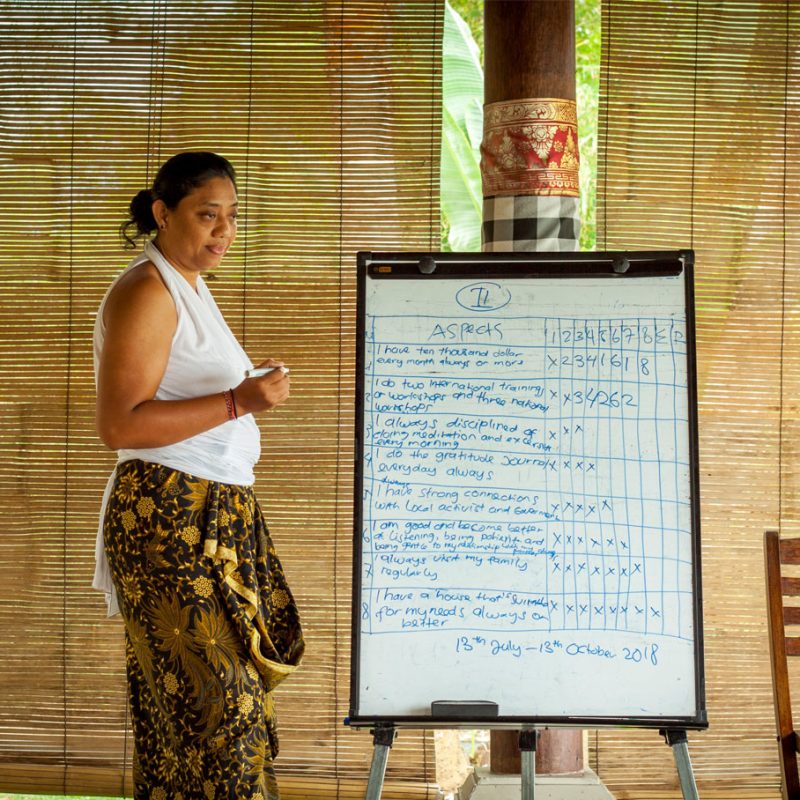 II
ASPECTS 1 2 3 4 5 6 7 8 Σ P
1 I have ten thousand dollar
every month always or more X 2 3 4 1 6 1 8
2 I do two international training
or workshops and three national X X 3 4 2 6 2
workshops
3 I always disciplined of X X X
doing meditation and
every morning
4 I do the gratitude journal X X X X
everyday always
always
5 I have strong connections
with local activist and X X X X X
6 I am good and become better
at listening, being patient and X X X X X X
being gentle to my relationship with my
7 I always visit my family X X X X X X X
regularly
8 I have a house that's
for my needs always or X X X X X X X X
better
13th July - 13th October 2018